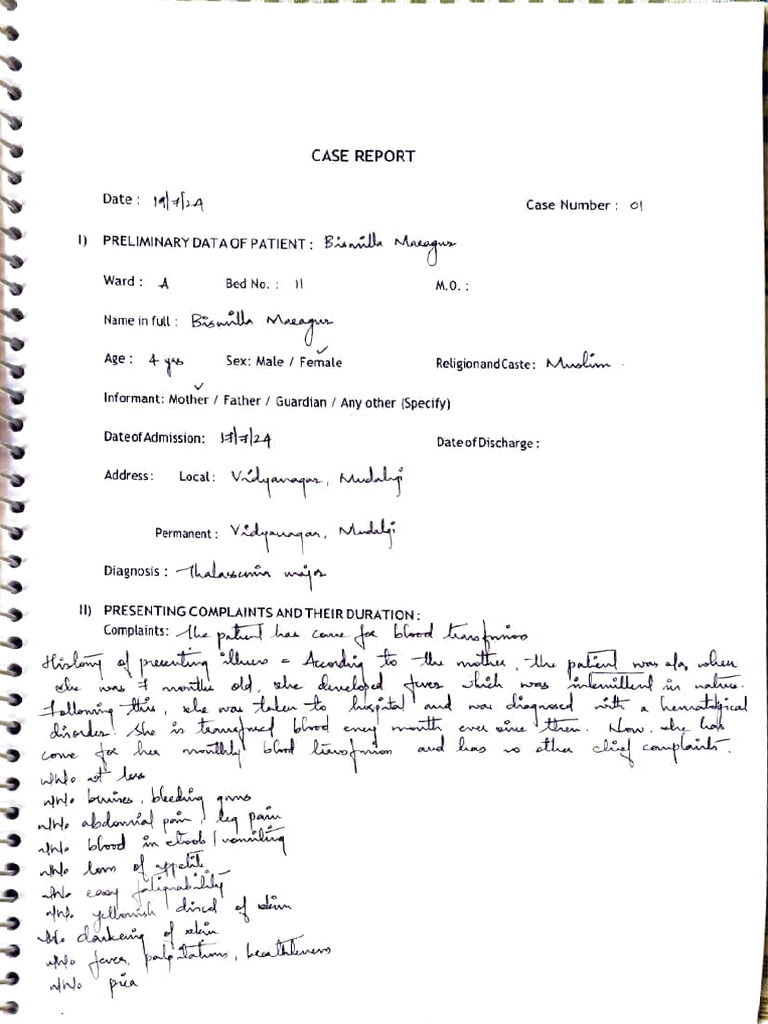 CASE REPORT
Date : 19/7/24 Case Number : 01
I) PRELIMINARY DATA OF PATIENT : Bismilla
Ward : A Bed No. : 11 M.O. :
Name in full : Bismilla
Age : 4 yrs Sex: Male / Female Religion and Caste : Muslim
Informant: Mother / Father / Guardian / Any other (Specify)
Date of Admission: 17/7/24 Date of Discharge :
Address : Local : Vidyanagar, Mudalgi
Permanent : Vidyanagar, Mudalgi
Diagnosis : Thalassemia major
II) PRESENTING COMPLAINTS AND THEIR DURATION :
Complaints: The patient has come for blood transfusion
History of presenting illness - According to the mother, the patient was when
she was 7 months old, she developed fever which was intermittent in nature.
Following this, she was taken to hospital and was diagnosed with a hematological
disorder. She is transfused blood every month ever since then. Now, she has
come for her monthly blood transfusion and has no other chief complaints.
n/h/o wt loss
n/h/o bruises, bleeding gums
n/h/o abdominal pain, leg pain
n/h/o blood in stools / vomiting
n/h/o loss of appetite
n/h/o easy fatiguability
n/h/o yellowish discol of skin
darkening of skin
n/h/o fever, palpitations, breathlessness
n/h/o pica